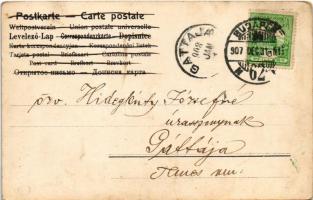 Postkarte — Carte postale
Weltpostverein — Union postale universelle
Levelező-Lap — Correspondenzkarte — Dopisnice
Karta korrespondencyjna — Korespondenční lístek
Tarjeta postal — Briefkaart — Brevkort
Post card — Brefkort — Brevkort
Открытое письмо — Дописна карта
GATTAJA
908 JAN
BUDAPEST
907 DEC 31
özv. Hidegkúty Józsefné
úrasszonynak
Gáttája
Temes m.